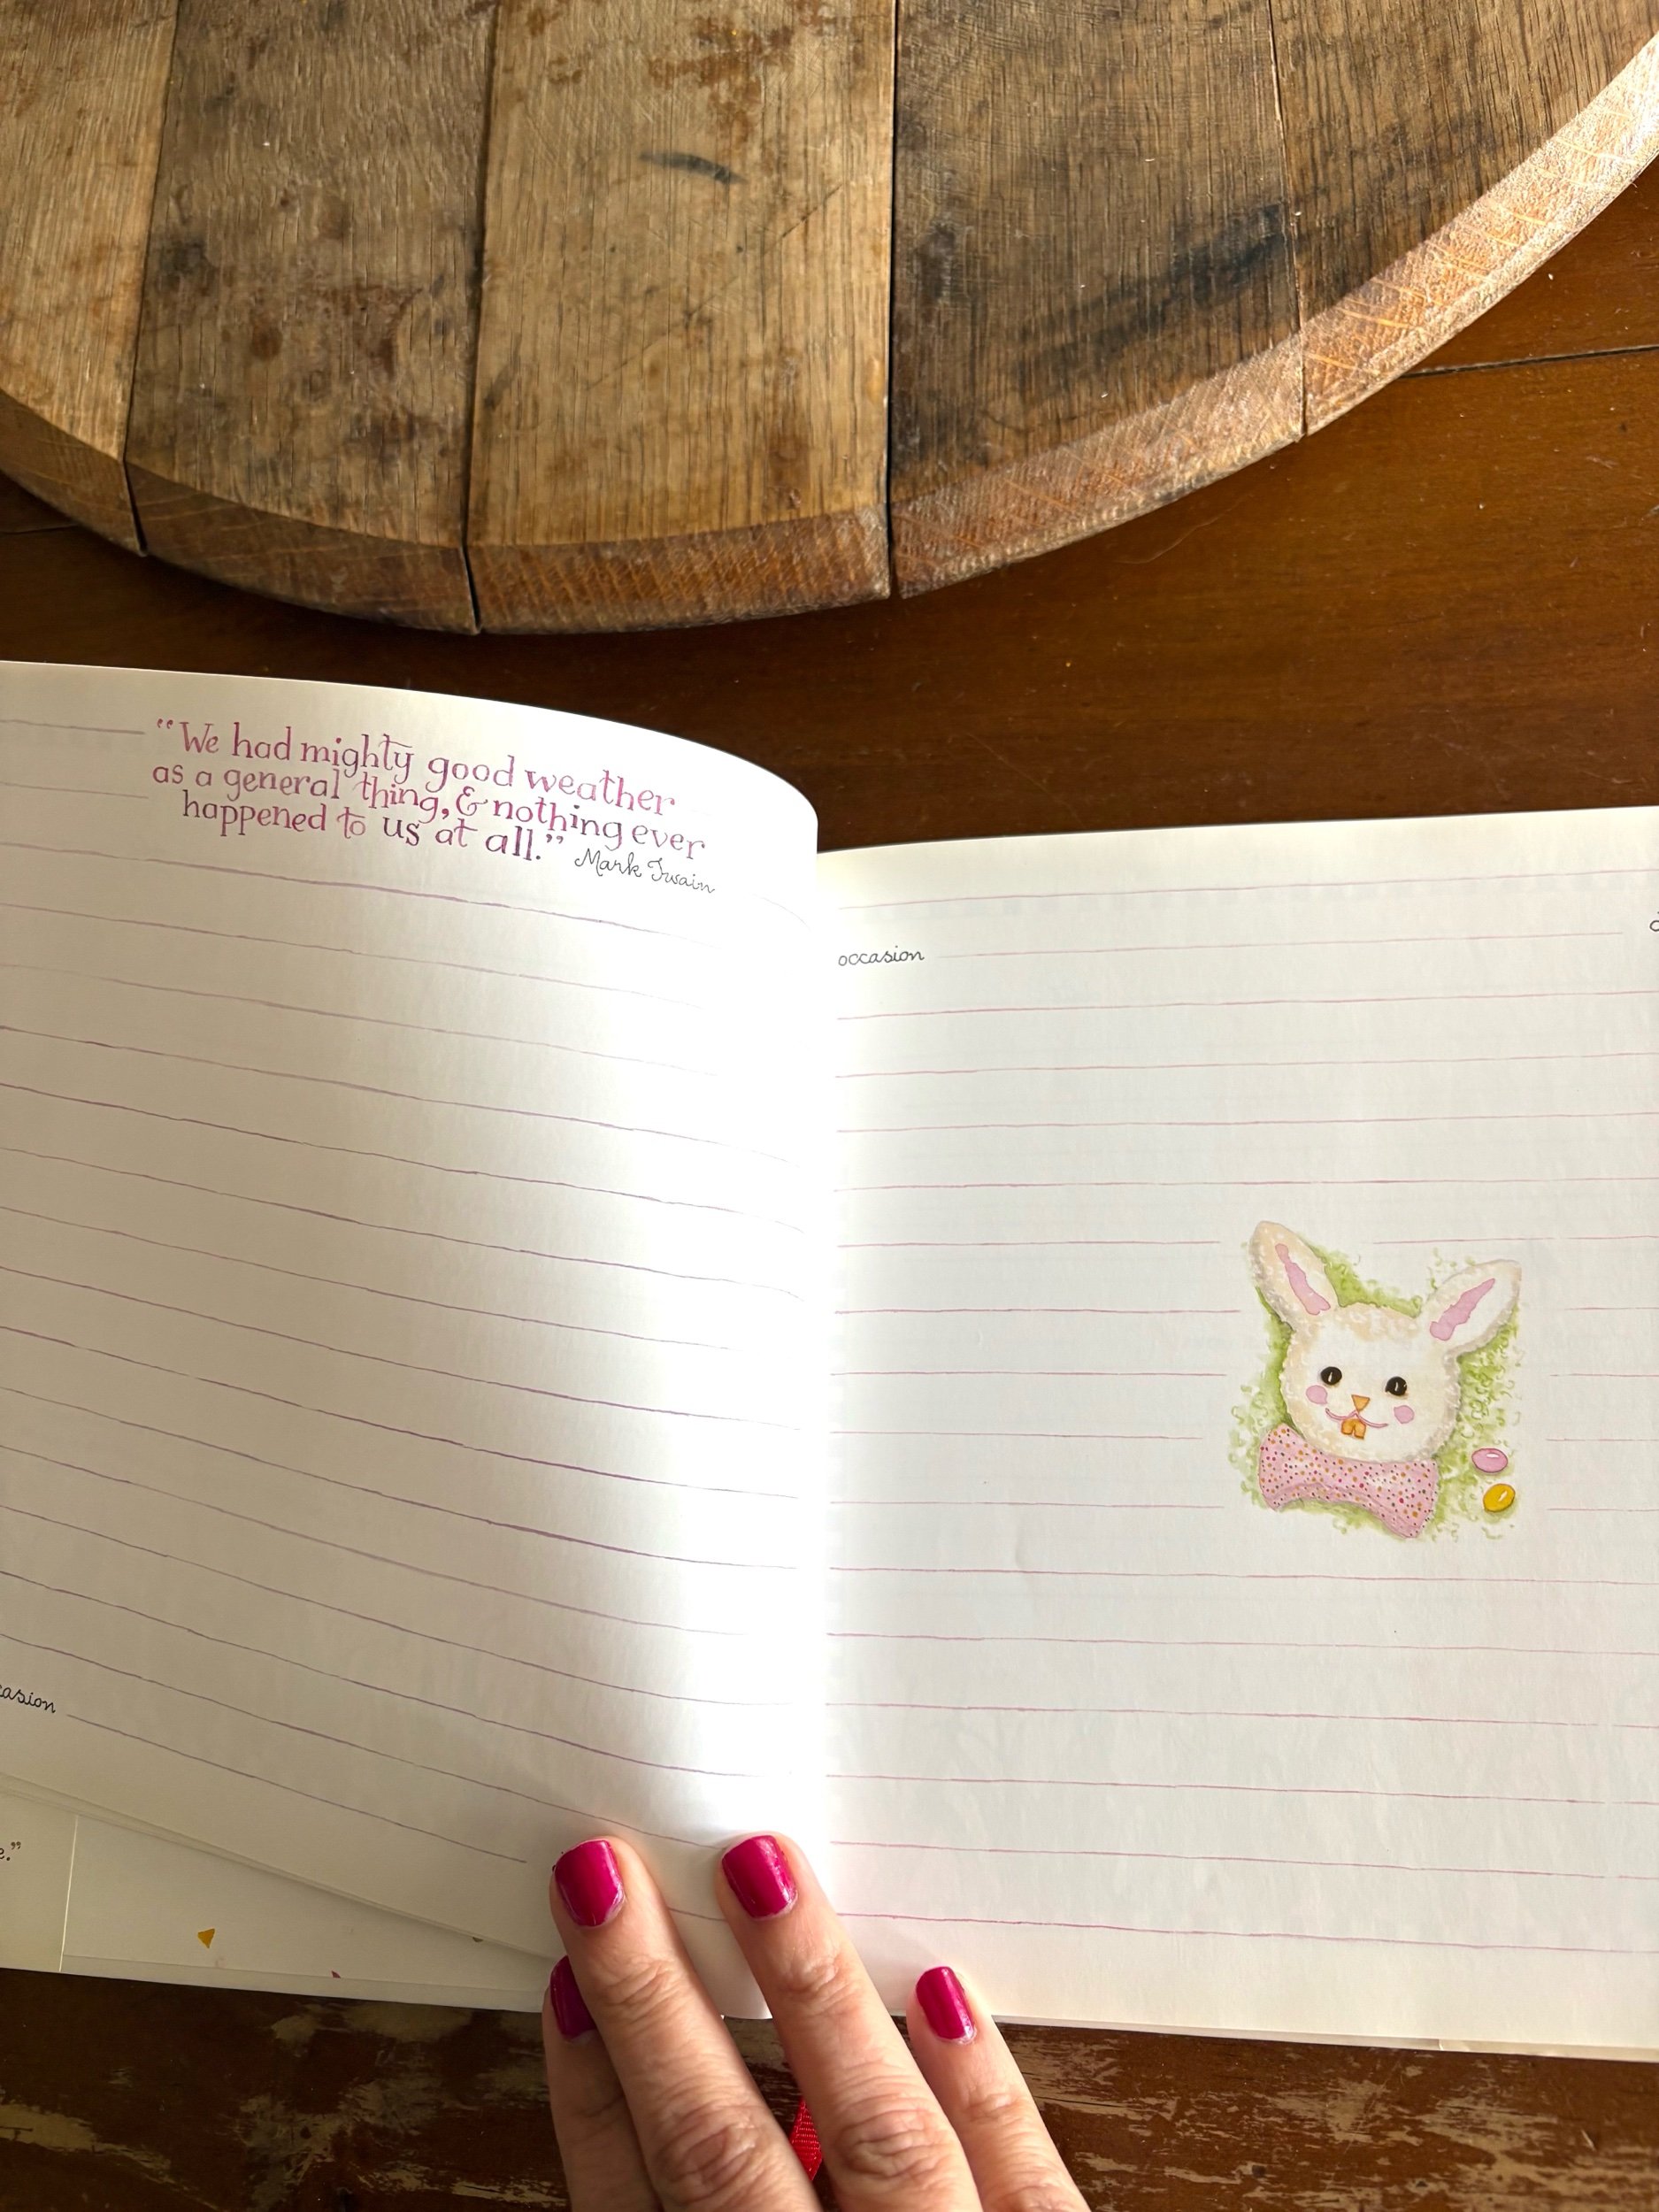 “We had mighty good weather
as a general thing, & nothing ever
happened to us at all.” Mark Twain
occasion